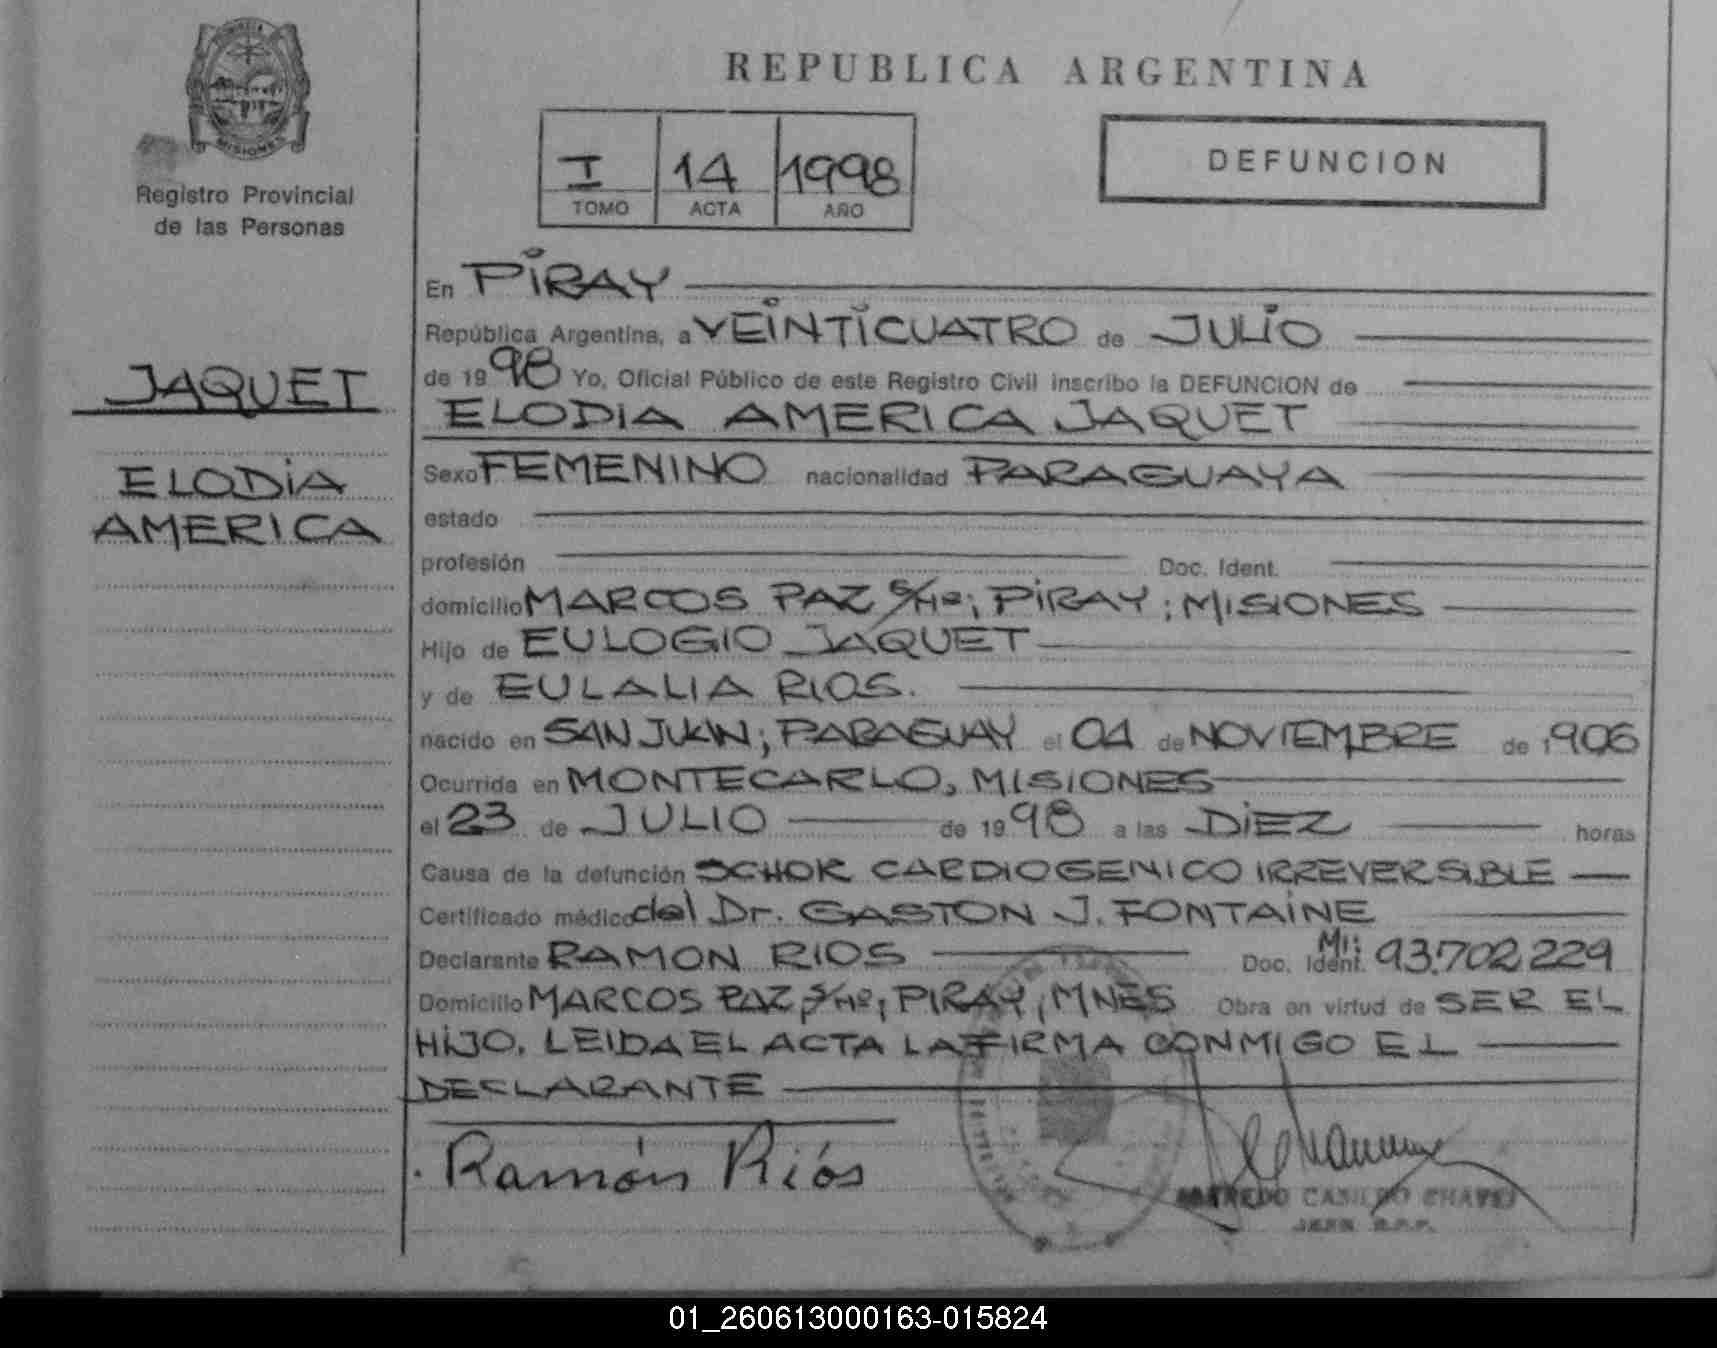 MISIONES
Registro Provincial
de las Personas
JAQUET
ELODIA
AMERICA
REPUBLICA ARGENTINA
I 14 1998
TOMO ACTA AÑO
DEFUNCION
En PIRAY
República Argentina, a VEINTICUATRO de JULIO
de 1998 Yo, Oficial Público de este Registro Civil inscribo la DEFUNCION de
ELODIA AMERICA JAQUET
Sexo FEMENINO nacionalidad PARAGUAYA
estado
profesión Doc. Ident.
domicilio MARCOS PAZ S/Nº; PIRAY; MISIONES
Hijo de EULOGIO JAQUET
y de EULALIA RIOS.
nacido en SAN JUAN; PARAGUAY el 04 de NOVIEMBRE de 1906
Ocurrida en MONTECARLO, MISIONES
el 23 de JULIO de 1998 a las DIEZ horas
Causa de la defunción SCHOK CARDIOGENICO IRREVERSIBLE
Certificado médico del Dr. GASTON J. FONTAINE
Declarante RAMON RIOS Doc. Ident. MI: 93.702.229
Domicilio MARCOS PAZ S/Nº; PIRAY; MNES Obra en virtud de SER EL
HIJO. LEIDA EL ACTA LA FIRMA CONMIGO EL
DECLARANTE
Ramón Ríos
ALFREDO CASILDO CHAVEZ
JEFE R.P.P.
01_260613000163-015824